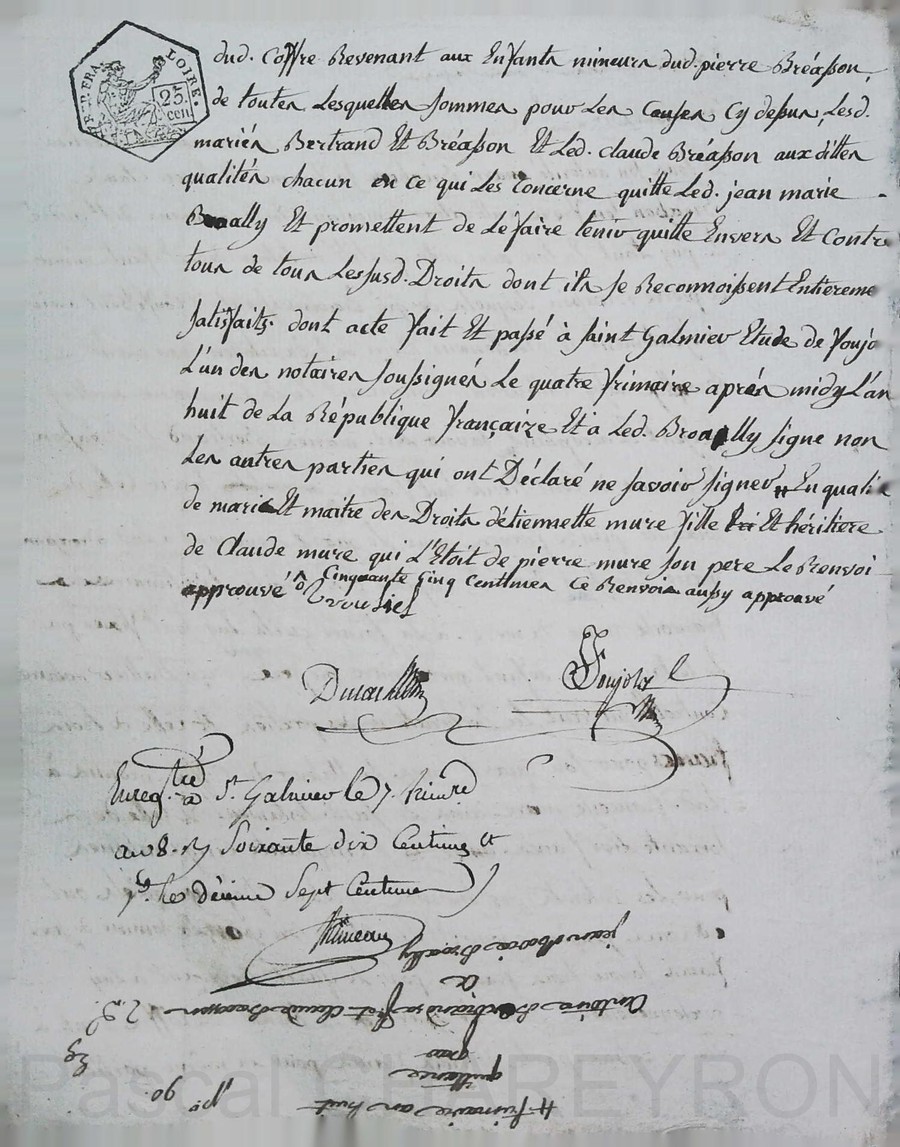 REP. FRA.
LOIRE.
25
cen
dud. Coffre Revenant aux Enfants mineurs dud. pierre Bréasson,
de toutes Lesquelles sommes pour Les Causes Cy dessus, Lesd.
mariés Bertrand Et Bréasson Et Led. Claude Bréasson aux dittes
qualités chacun en ce qui Les Concerne quitte Led. jean marie
Broally Et promettent de Le faire tenir quitte Envers Et Contre
tous de tous Les susd. Droits dont ils se Reconnoissent Entiereme
satisfaits. dont acte fait Et passé à Saint Galmier Etude de Foujo
L'un des notaires soussignés Le quatre frimaire après midy L'an
huit de La République françaize Et a Led. Broally signé non
Les autres parties qui ont Déclaré ne savoir signer, En quali
de mari Et maitre des Droits d'étiennette mure fille Et héritiere
de Claude mure qui L'Etoit de pierre mure son pere Le Renvoi
approuvé Cinquante Cinq Centimes Ce Renvoi aussy approuvé
Foujols
Enreg.tré à St. Galmier le 7. frimre
an 8. Soixante dix Centimes et
pr. les décime Sept Centimes
jean Marie Broally
a
Antoine Bertrand sa fe et Claude Breasson
quittance
4 frimaire an huit
no. 90
Pascal REYRON